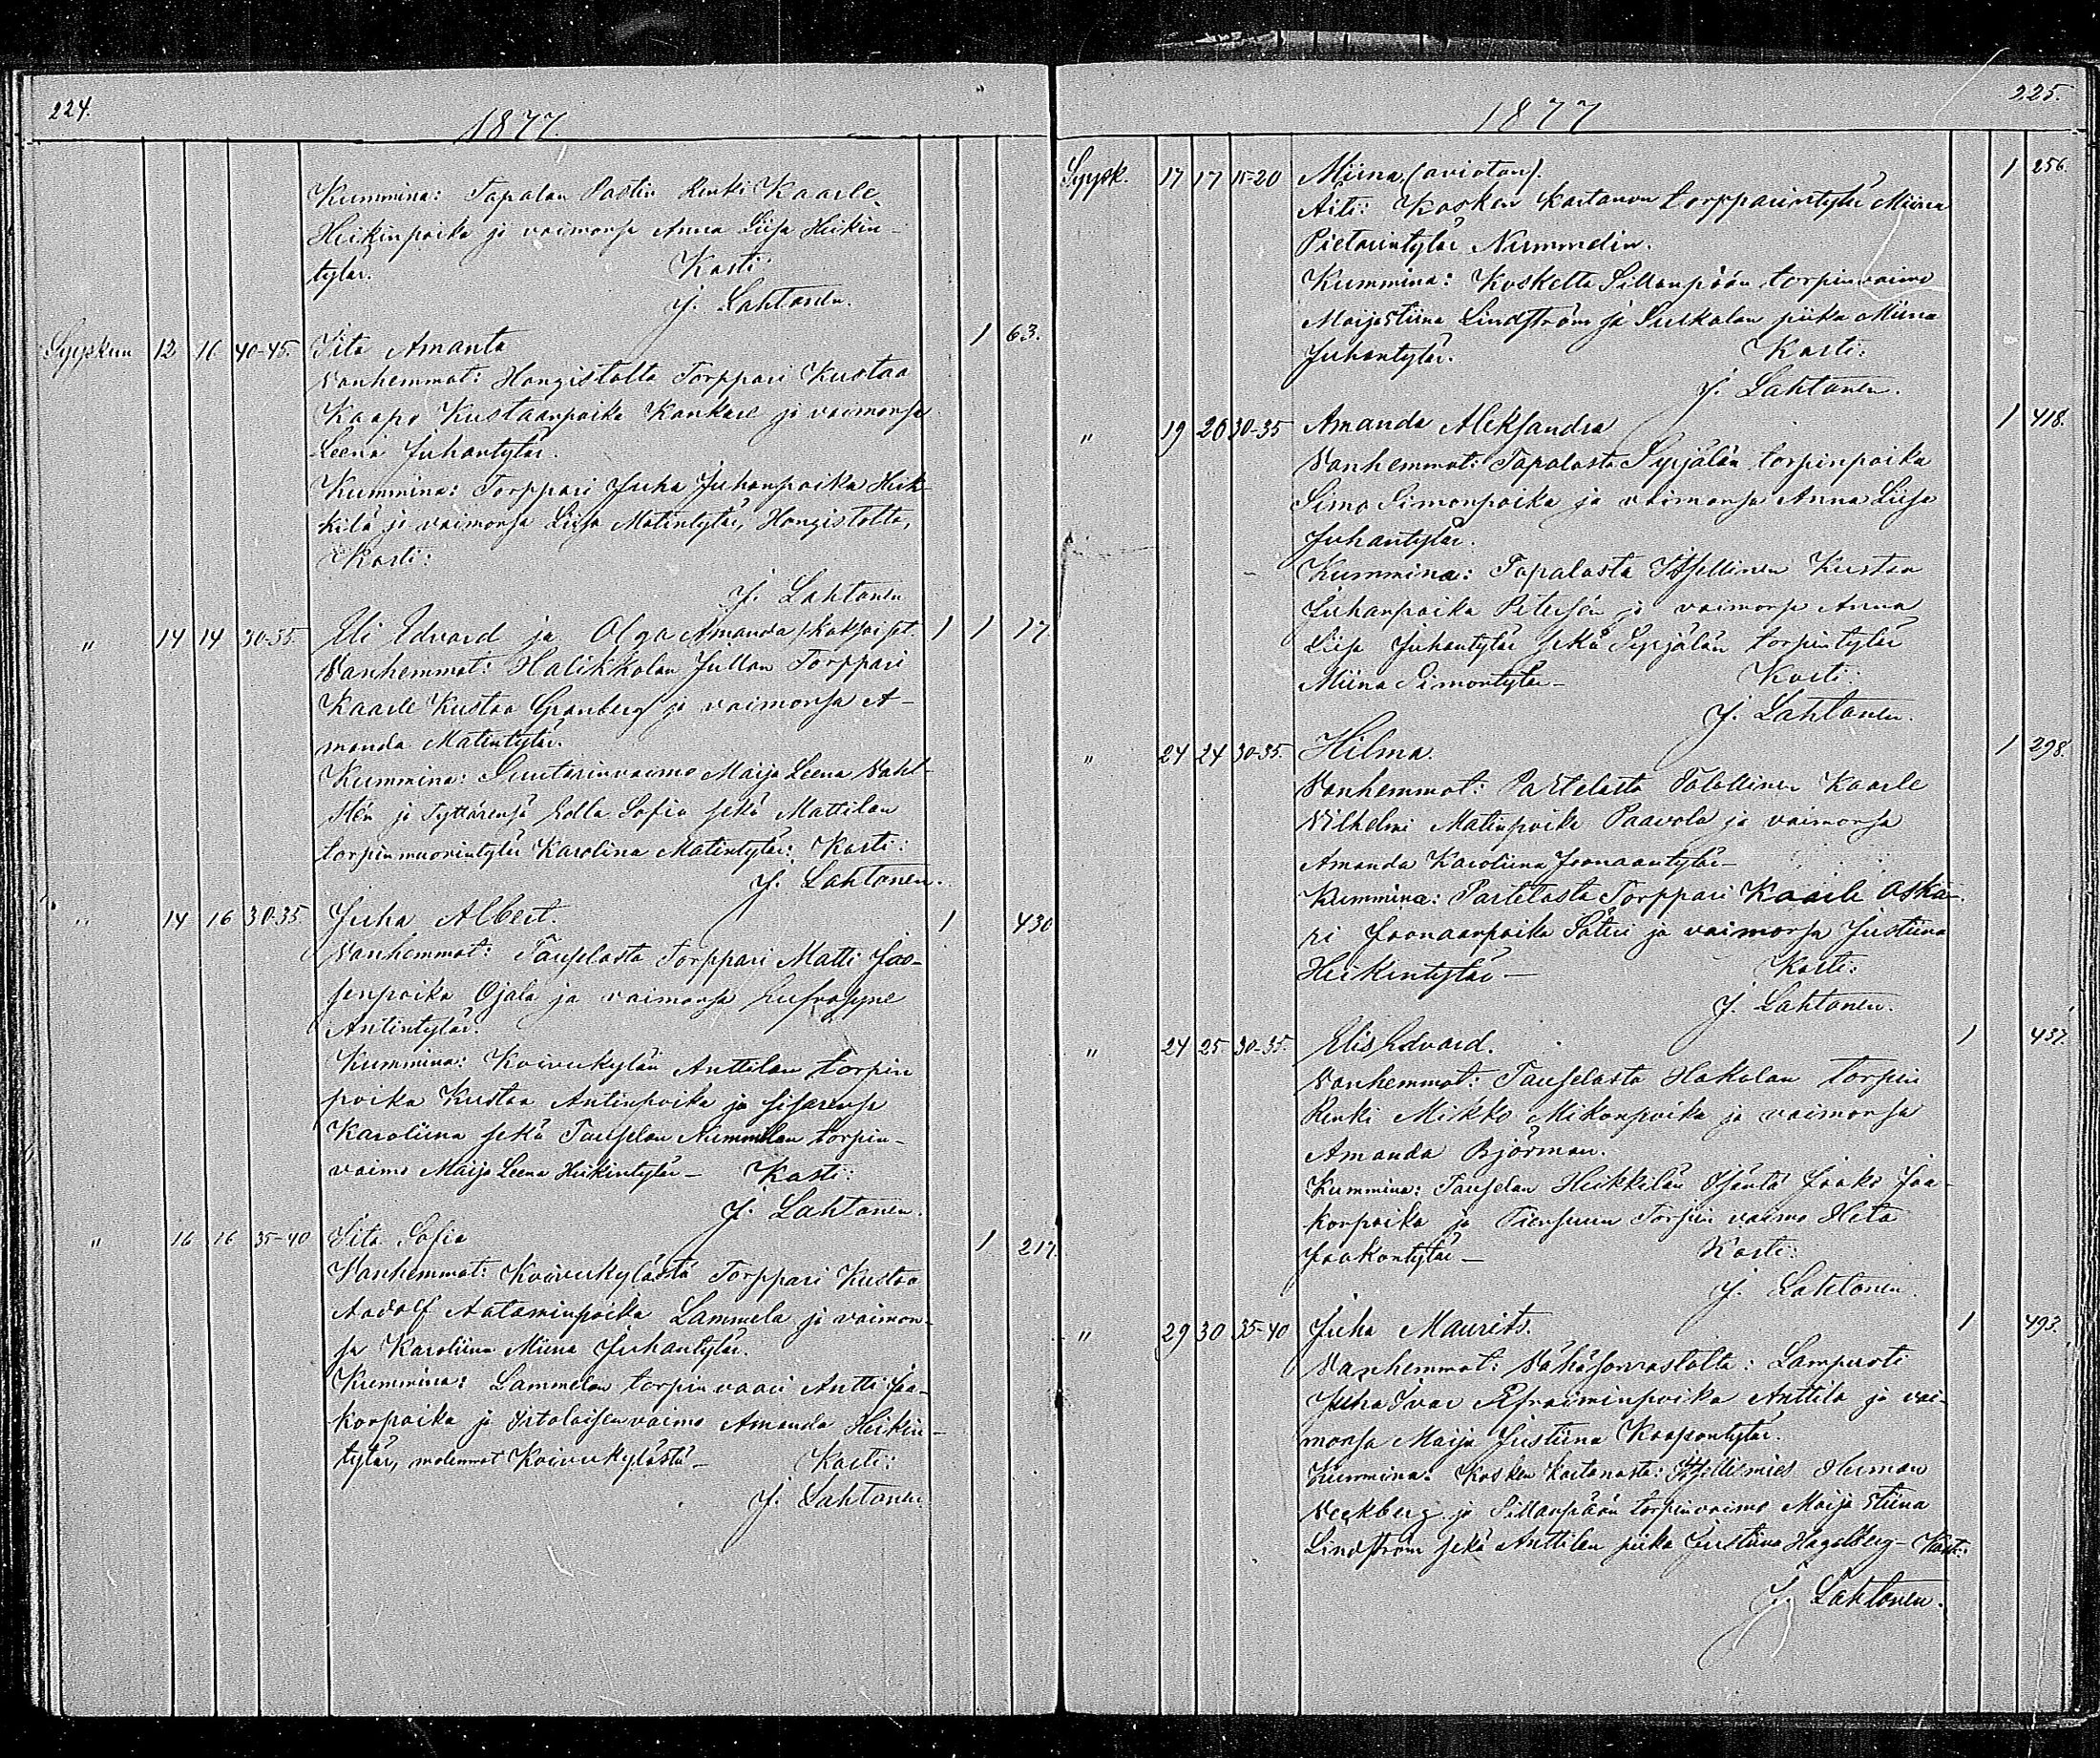 224.
1877.
Kummina: Tapalan Pastin Renki Kaarle
Heikinpoika ja vaimonsa Anna Liisa Heikin-
tytär. Kasti
J. Lahtonen.
Syyskuu 12 16 40-45. Iita Amanta 1 63.
Vanhemmat: Hongistolta Torppari Kustaa
Kaapo Kustaanpoika Kankare ja vaimonsa
Leena Juhantytär.
Kummina: Torppari Juha Juhanpoika Heik-
kilä ja vaimonsa Liisa Matintytär, Hongistolta,
Kasti:
J. Lahtonen
" 14 14 30-35. Edvard ja Olga Amanda 1 1 17.
Vanhemmat: Halikkolan Jullan Torppari
Kaarle Kustaa Granberg ja vaimonsa A-
manda Matintytär.
Kummina: Suutarinvaimo Maija Leena Vahl-
stén ja tyttärensä Lolla Sofia sekä Mattilan
torpinmuorintytär Karolina Matintytär: Kasti:
J. Lahtonen.
" 14 16 30-35 Juha Albert. 1 430
Vanhemmat: Tauselasta Torppari Matti Joo-
senpoika Ojala ja vaimonsa Eufrosyne
Antintytär.
Kummina: Koivukylän Anttilan torpin
poika Kustaa Antinpoika ja sisarensa
Karoliina sekä Tauselan Nummilan torpin-
vaimo Maija Leena Heikintytär – Kasti:
J. Lahtonen.
" 16 16 35-40 Iita Sofia 1 217.
Vanhemmat: Koivukylästä Torppari Kustaa
Aadolf Aataminpoika Lammela ja vaimon-
sa Karoliina Miina Juhantytär.
Kummina: Lammelan torpin vaari Antti Jaa-
konpoika ja Itsellisenvaimo Amanda Heikin-
tytär, molemmat Koivukylästä – Kasti:
J. Lahtonen
225.
1877
Syysk. 17 17 15-20 Miina (avioton). 1 256.
Äiti: Kosken Kartanon torpparintytär Miina
Pietarintytär Nummelin.
Kummina: Koskelta Sillanpään torpinvaimo
Maijastiina Lindström ja Suskalan piika Miina
Juhantytär. Kasti:
J. Lahtonen.
" 19 20 30-35 Amanda Aleksandra 1 418.
Vanhemmat: Tapalasta Syrjälän torpinpoika
Simo Simonpoika ja vaimonsa Anna Liisa
Juhantytär.
Kummina: Tapalasta Itsellinen Kustaa
Juhanpoika Petersén ja vaimonsa Anna
Liisa Juhantytär sekä Syrjälän torpintytär
Miina Simontytär – Kasti:
J. Lahtonen.
" 24 24 30-35. Hilma. 1 298.
Vanhemmat: Partelasta Talollinen Kaarle
Vilhelmi Matinpoika Paavola ja vaimonsa
Amanda Karoliina Joonaantytär –
Kummina: Partelasta Torppari Kaarle Oska-
ri Joonaanpoika Säteri ja vaimonsa Justiina
Heikintytär – Kasti:
J. Lahtonen.
" 24 25 30-35. Elis Edvard. 1 437.
Vanhemmat: Tauselasta Hakalan torpin
Renki Mikko Mikonpoika ja vaimonsa
Amanda Björman.
Kummina: Tauselan Heikkilän Isäntä Jaako Jaa-
konpoika ja Torpin vaimo Heta
Jaakontytär – Kasti:
J. Lahtonen.
" 29 30 35-40 Juha Maurits. 1 493.
Vanhemmat: Vähäsorvastolta: Lampuoti
Juha Ivar Efraiminpoika Anttila ja vai-
monsa Maija Justiina Kaapontytär.
Kummina: Kosken Kartanosta: Itsellismies Herman
Veckberg ja Sillanpään torpinvaimo Maija Stiina
Lindström sekä Anttilan piika Justiina Hagelberg – Kasti:
J. Lahtonen.